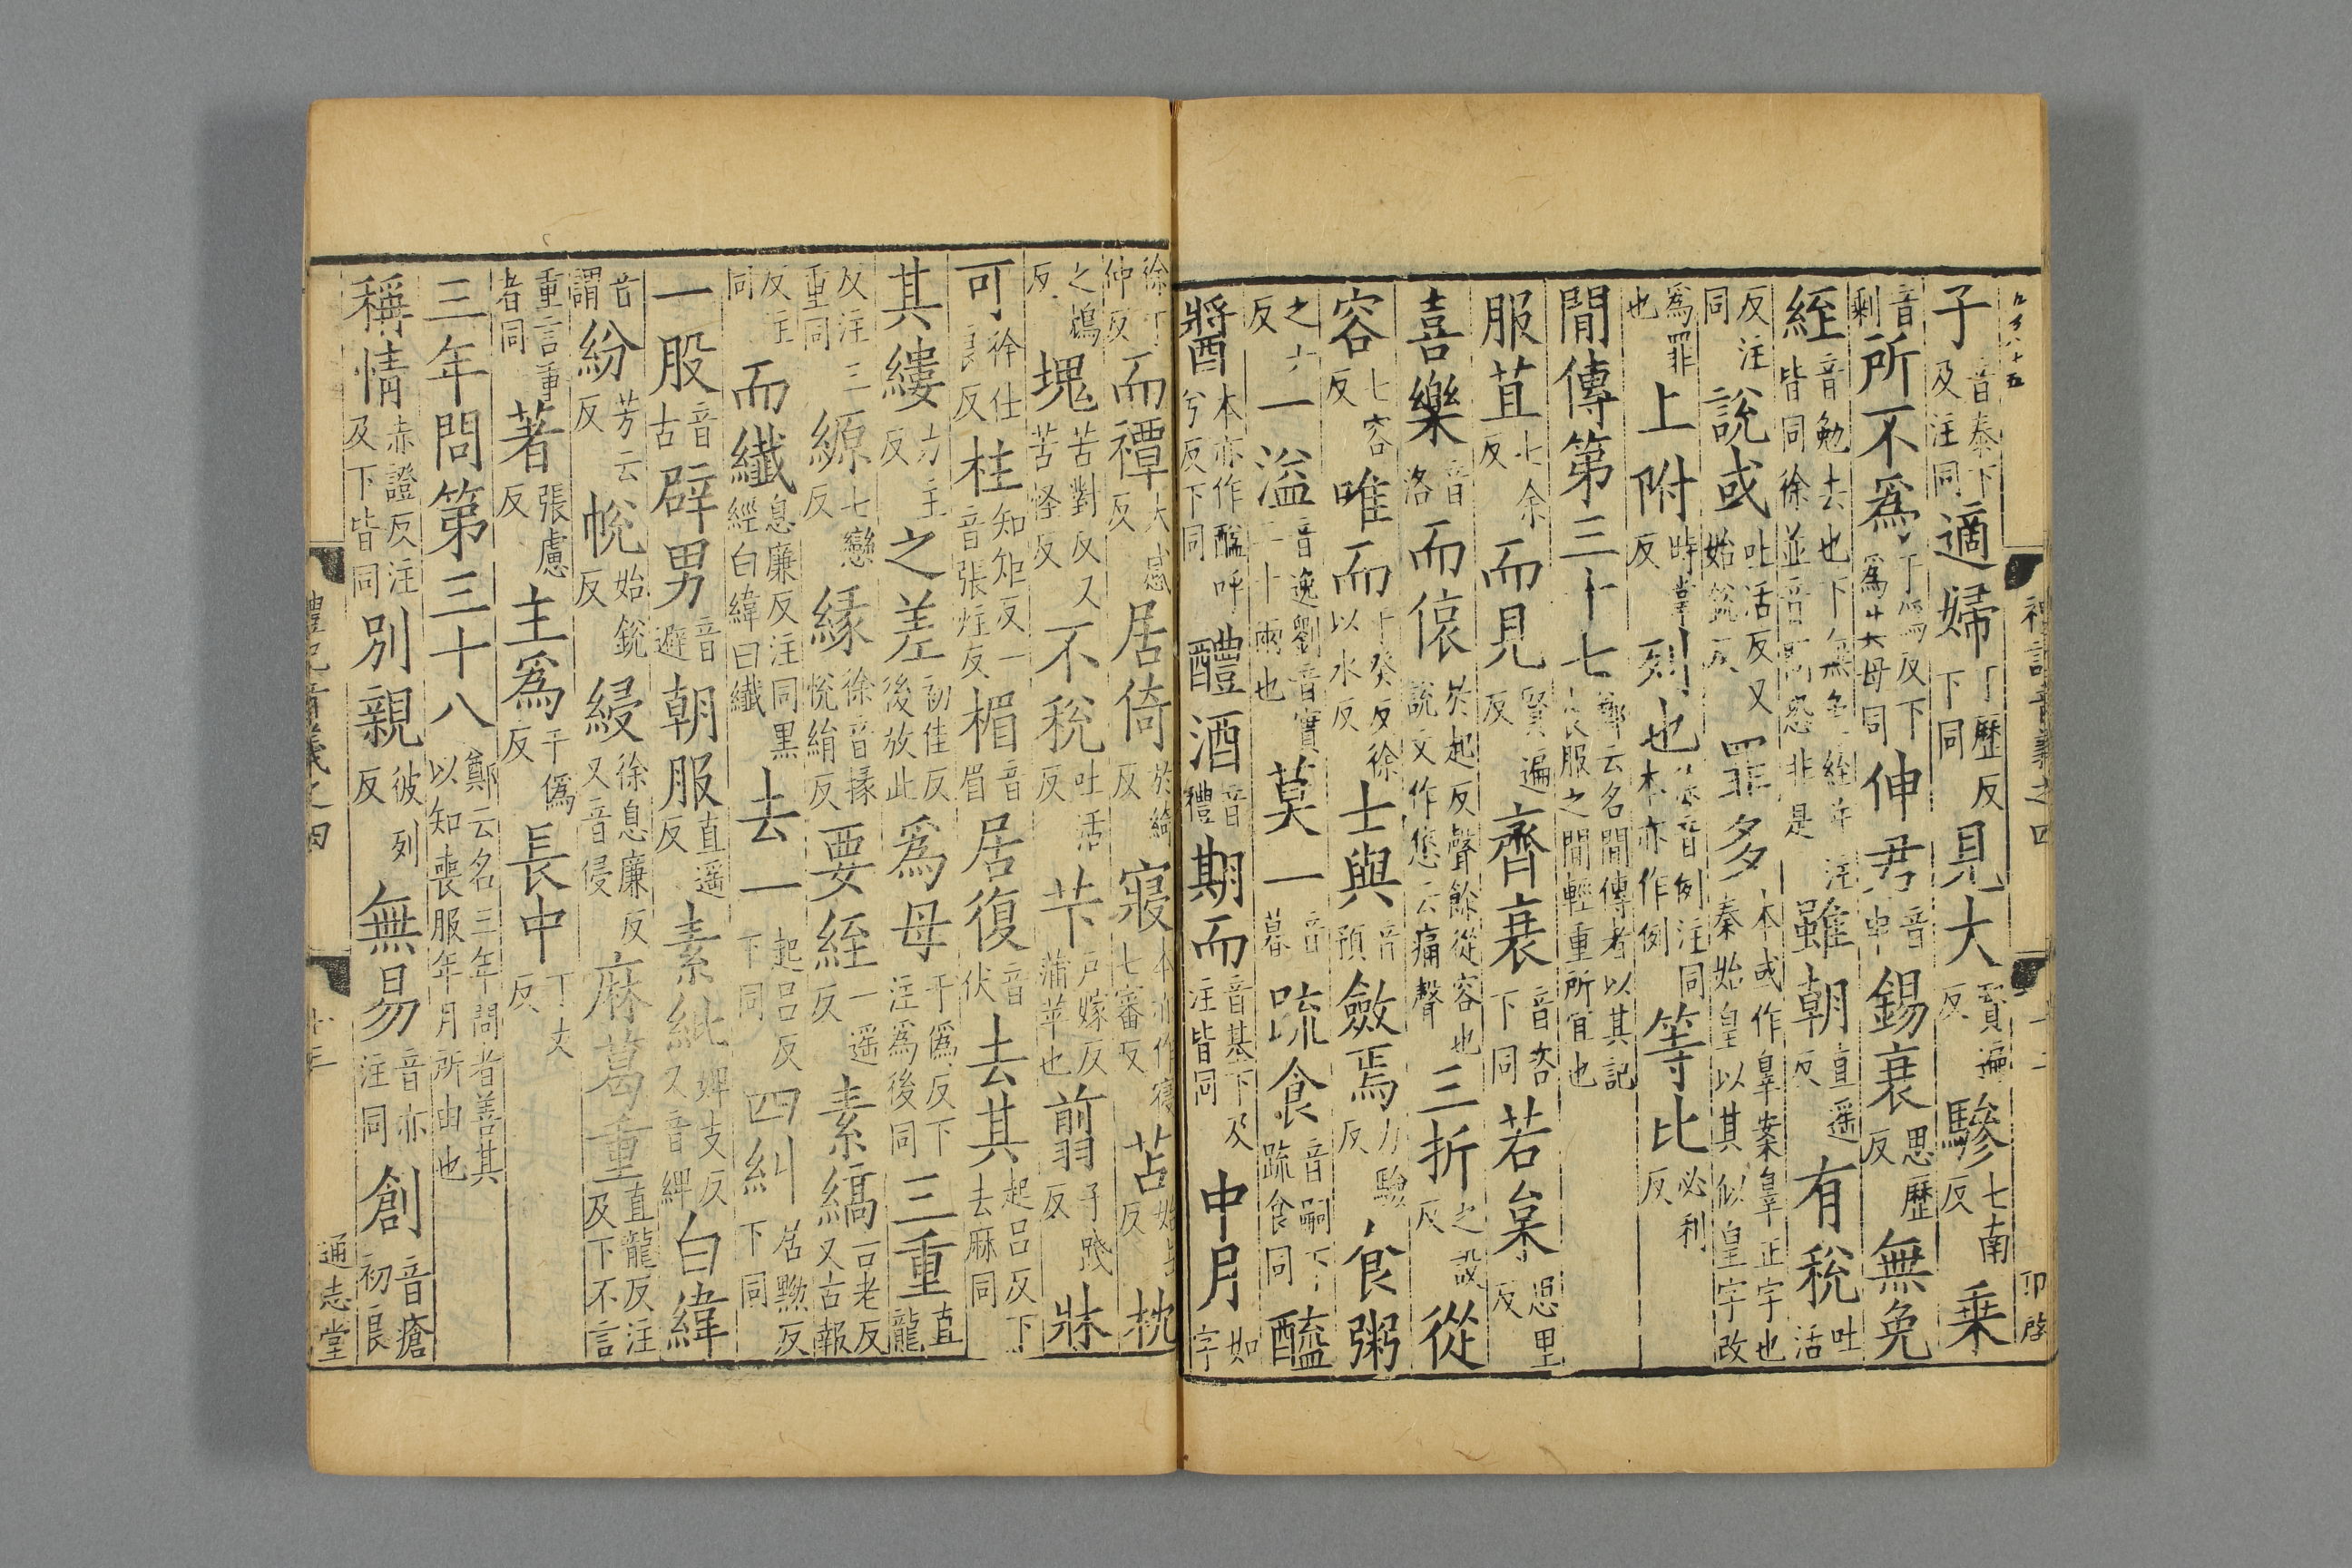 子音泰下及注同適婦丁歷反下同見大賢遍反驂七南反乗
音剩所不爲丁僞反下爲其母同伸君音申錫衰思歷反無免
絰音勉去也下無免絰并注皆同徐並音問恐非是雖朝直遥反有稅吐活
反注同說或吐活反又始銳反罪多本或作辠案辠正字也秦始皇以其似皇字改
爲罪也上附時掌反列也徐音例注同本亦作例等比必利反
閒傳第三十七鄭云名閒傳者以其記喪服之閒輕重所宜也
服苴七余反而見賢遍反齊衰音咨下同若枲思里反
喜樂音洛而偯於起反聲餘從容也説文作㥋云痛聲三折之設反從
容七容反唯而于癸反徐以水反士與音預斂焉力驗反食粥
之六反一溢音逸劉音實二十兩也莫一音暮疏食音嗣下疏食同醯
醬本亦作醯呼兮反下同醴酒音禮期而音基下及注皆同中月如字
徐丁仲反而禫大感反居倚於綺反寢本亦作寑七審反苫始占反枕
之鴆反塊苦對反又苦怪反不稅吐活反苄戶嫁反蒲苹也翦子踐反牀
可徐仕良反柱知矩反一音張炷反楣音眉居復音伏去其起呂反下去麻同
其縷力主反之差初佳反後放此爲母于僞反下注爲後同三重直龍
反注三重同縓七戀反緣徐音掾悅絹反要絰一遥反素縞古老反又古報
反注同而纖息廉反注同黑經白緯曰纖去一起呂反下同四糾居黝反下同
一股音古辟男音避朝服直遥反素紕婢支反又音紕白緯
音謂紛芳云反帨始銳反綅徐息廉反又音侵麻葛重直龍反注及下不言
重言重者同著張慮反主爲于僞反長中丁丈反
三年問第三十八鄭云名三年問者善其以知喪服年月所由也
稱情赤證反注及下皆同別親彼列反無易音亦注同創音瘡初良
禮記音義之四
通志堂